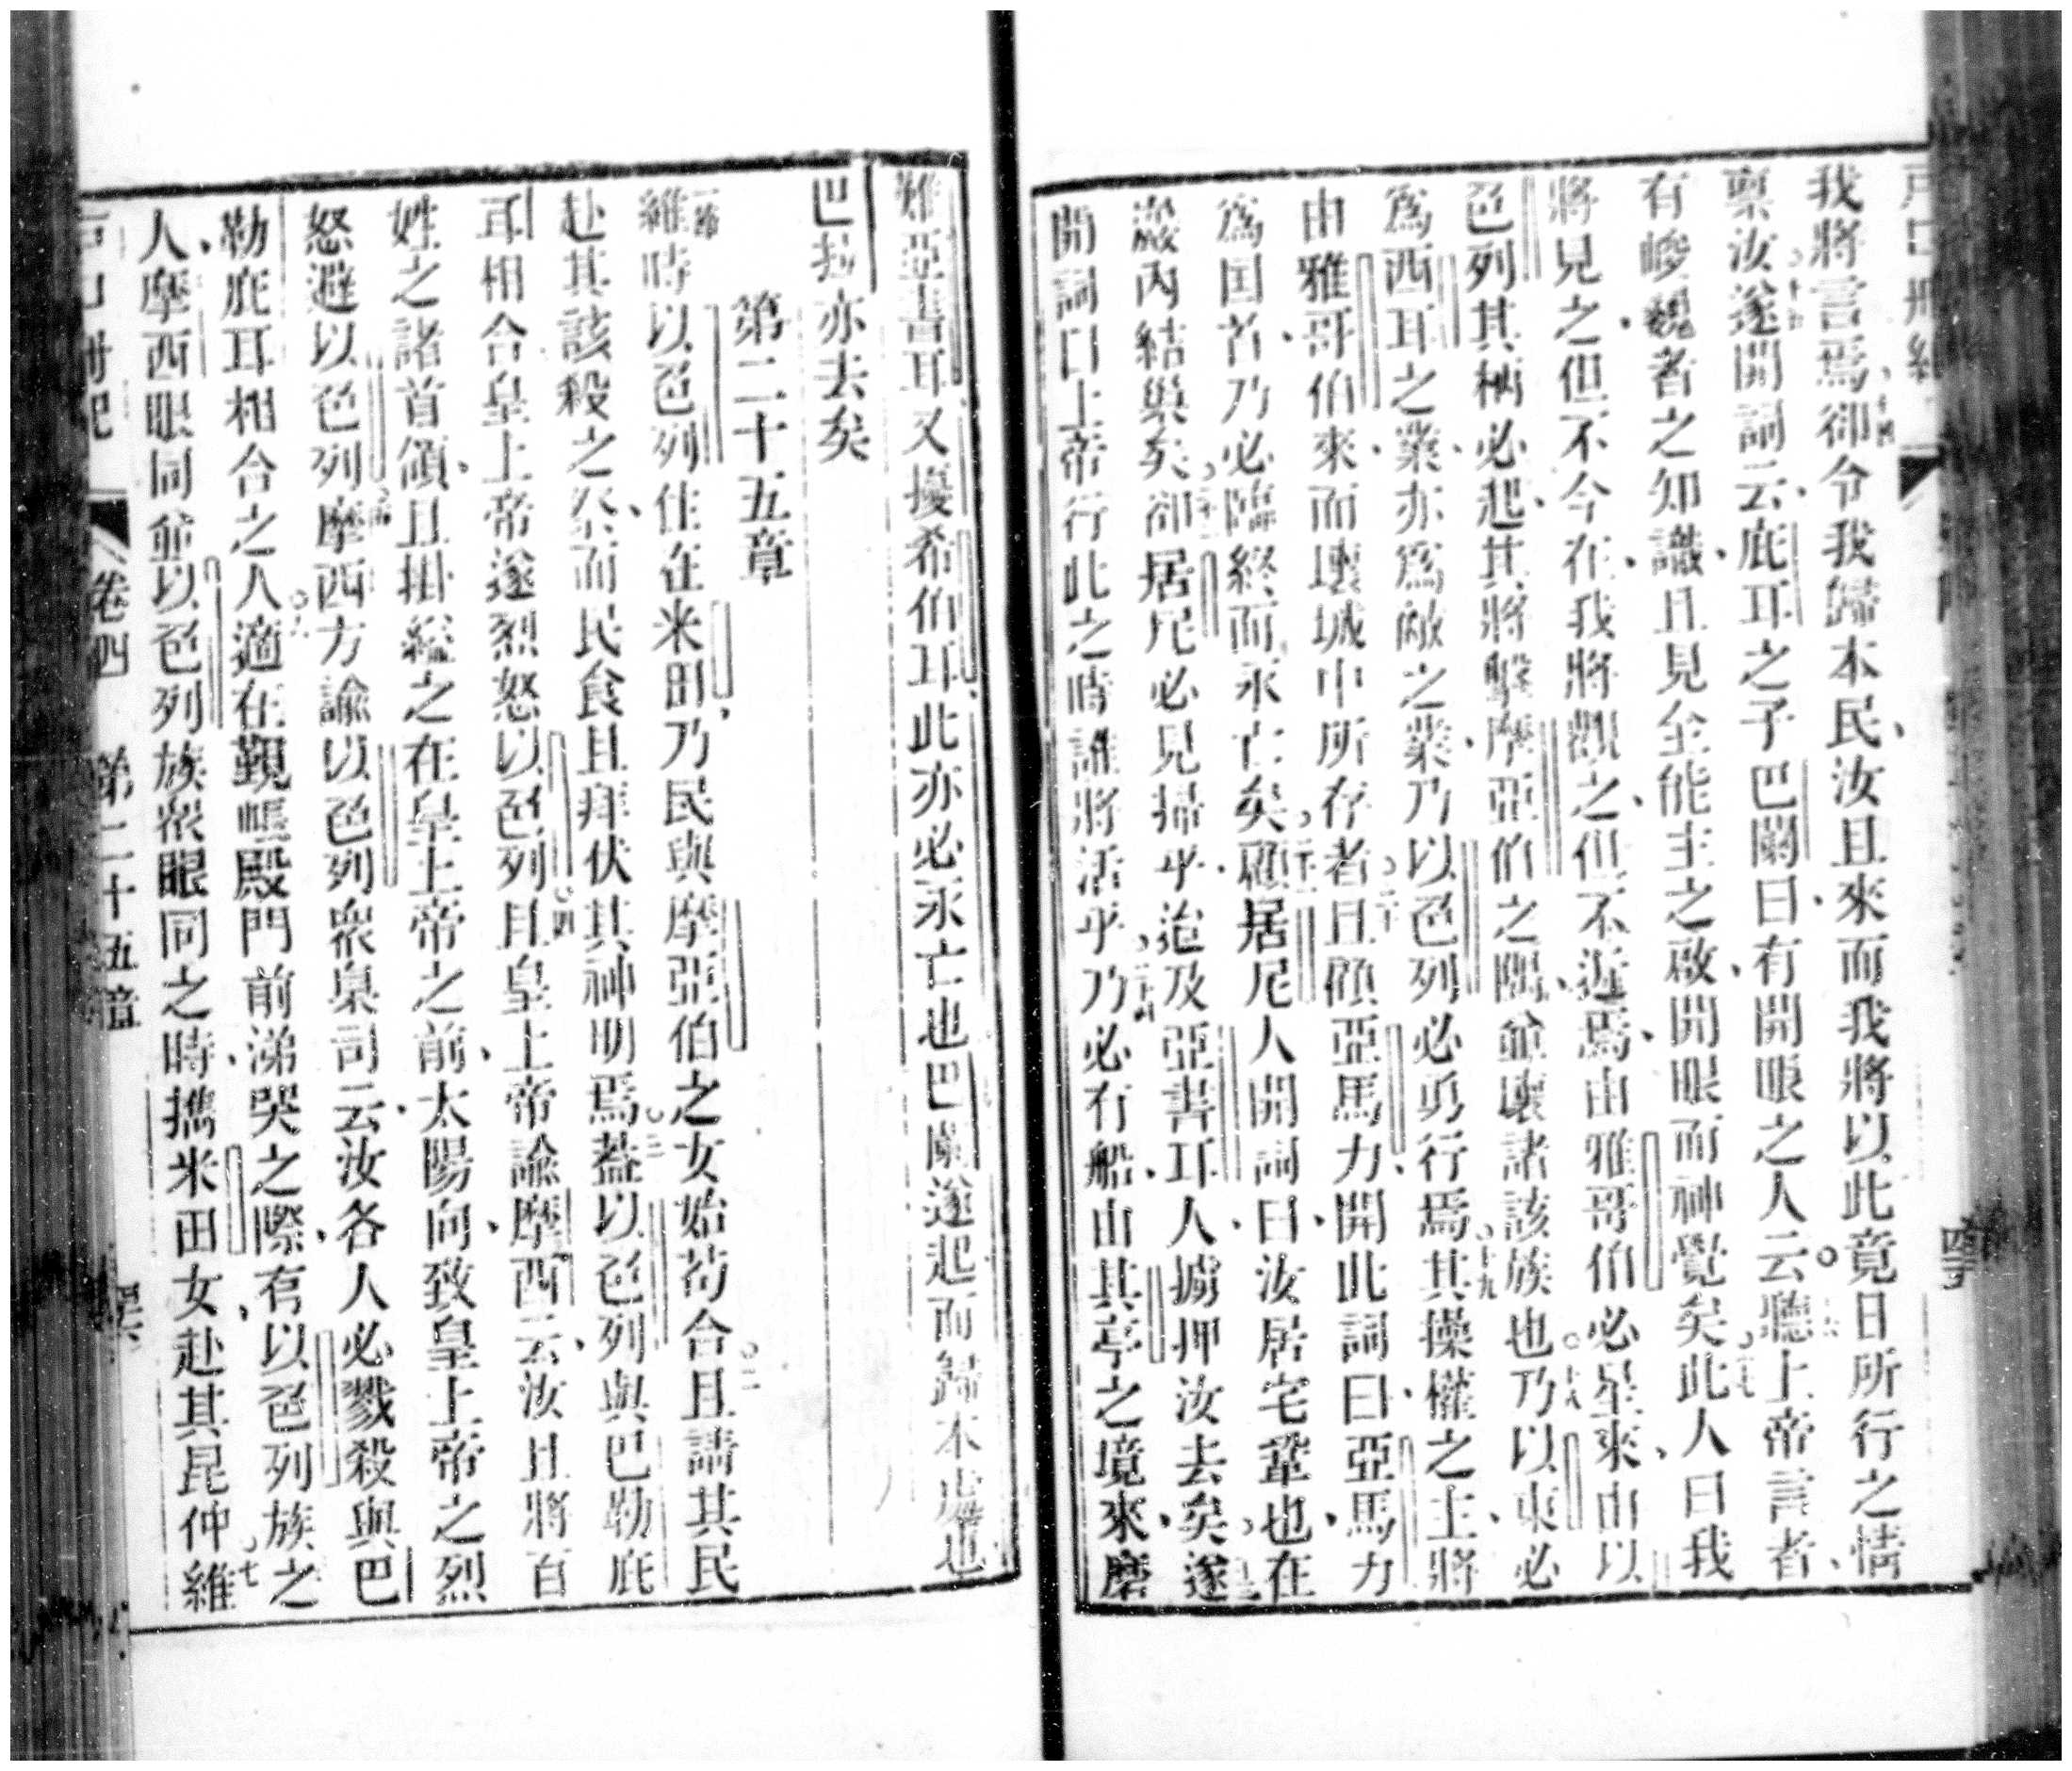 戶口冊紀
我將言焉十四卻令我歸本民、汝且來而我將以此竟日所行之情
稟汝十五遂開詞云、庇耳之子巴蘭曰、有開眼之人云十六聽上帝言者、
有峻巍者之知識、且見全能主之啟、開眼而神覺矣十七此人曰我
將見之、但不今在、我將觀之、但不近焉、由雅哥伯必星來、由以
色列其柄必起、其將擊摩亞伯之隅、並壞諸該族也十八乃以東必
為西耳之業、亦為敵之業、乃以色列必勇行焉十九其操權之主、將
由雅哥伯來、而壞城中所存者二十且顧亞馬力、開此詞曰、亞馬力
為国首、乃必臨終而永亡矣二十一顧居尼人開詞曰、汝居宅鞏也、在
巖內結巢矣二十二卻居尼必見掃乎、迨及亞書耳人、擄押汝去矣二十三遂
開詞曰上帝行此之時誰將活乎二十四乃必有船、由其亭之境來、磨
難亞書耳、又擾希伯耳、此亦必永亡也巴蘭遂起而歸本處也
巴拉亦去矣
第二十五章
一節維時以色列住在米田、乃民與摩亞伯之女始苟合二且請其民
赴其該殺之祭、而民食且拜伏其神明焉三蓋以色列與巴勒庇
耳相合皇上帝遂烈怒以色列四且皇上帝諭摩西云、汝且將百
姓之諸首領、且掛縊之在皇上帝之前、太陽向、致皇上帝之烈
怒避以色列五摩西方諭以色列眾臬司云、汝各人必戮殺與巴
勒庇耳相合之人六適在覲幔殿門前涕哭之際、有以色列族之
人、摩西眼同並以色列族眾眼同之時、携米田女、赴其昆仲七維
戶口冊紀 卷四 第二十五章